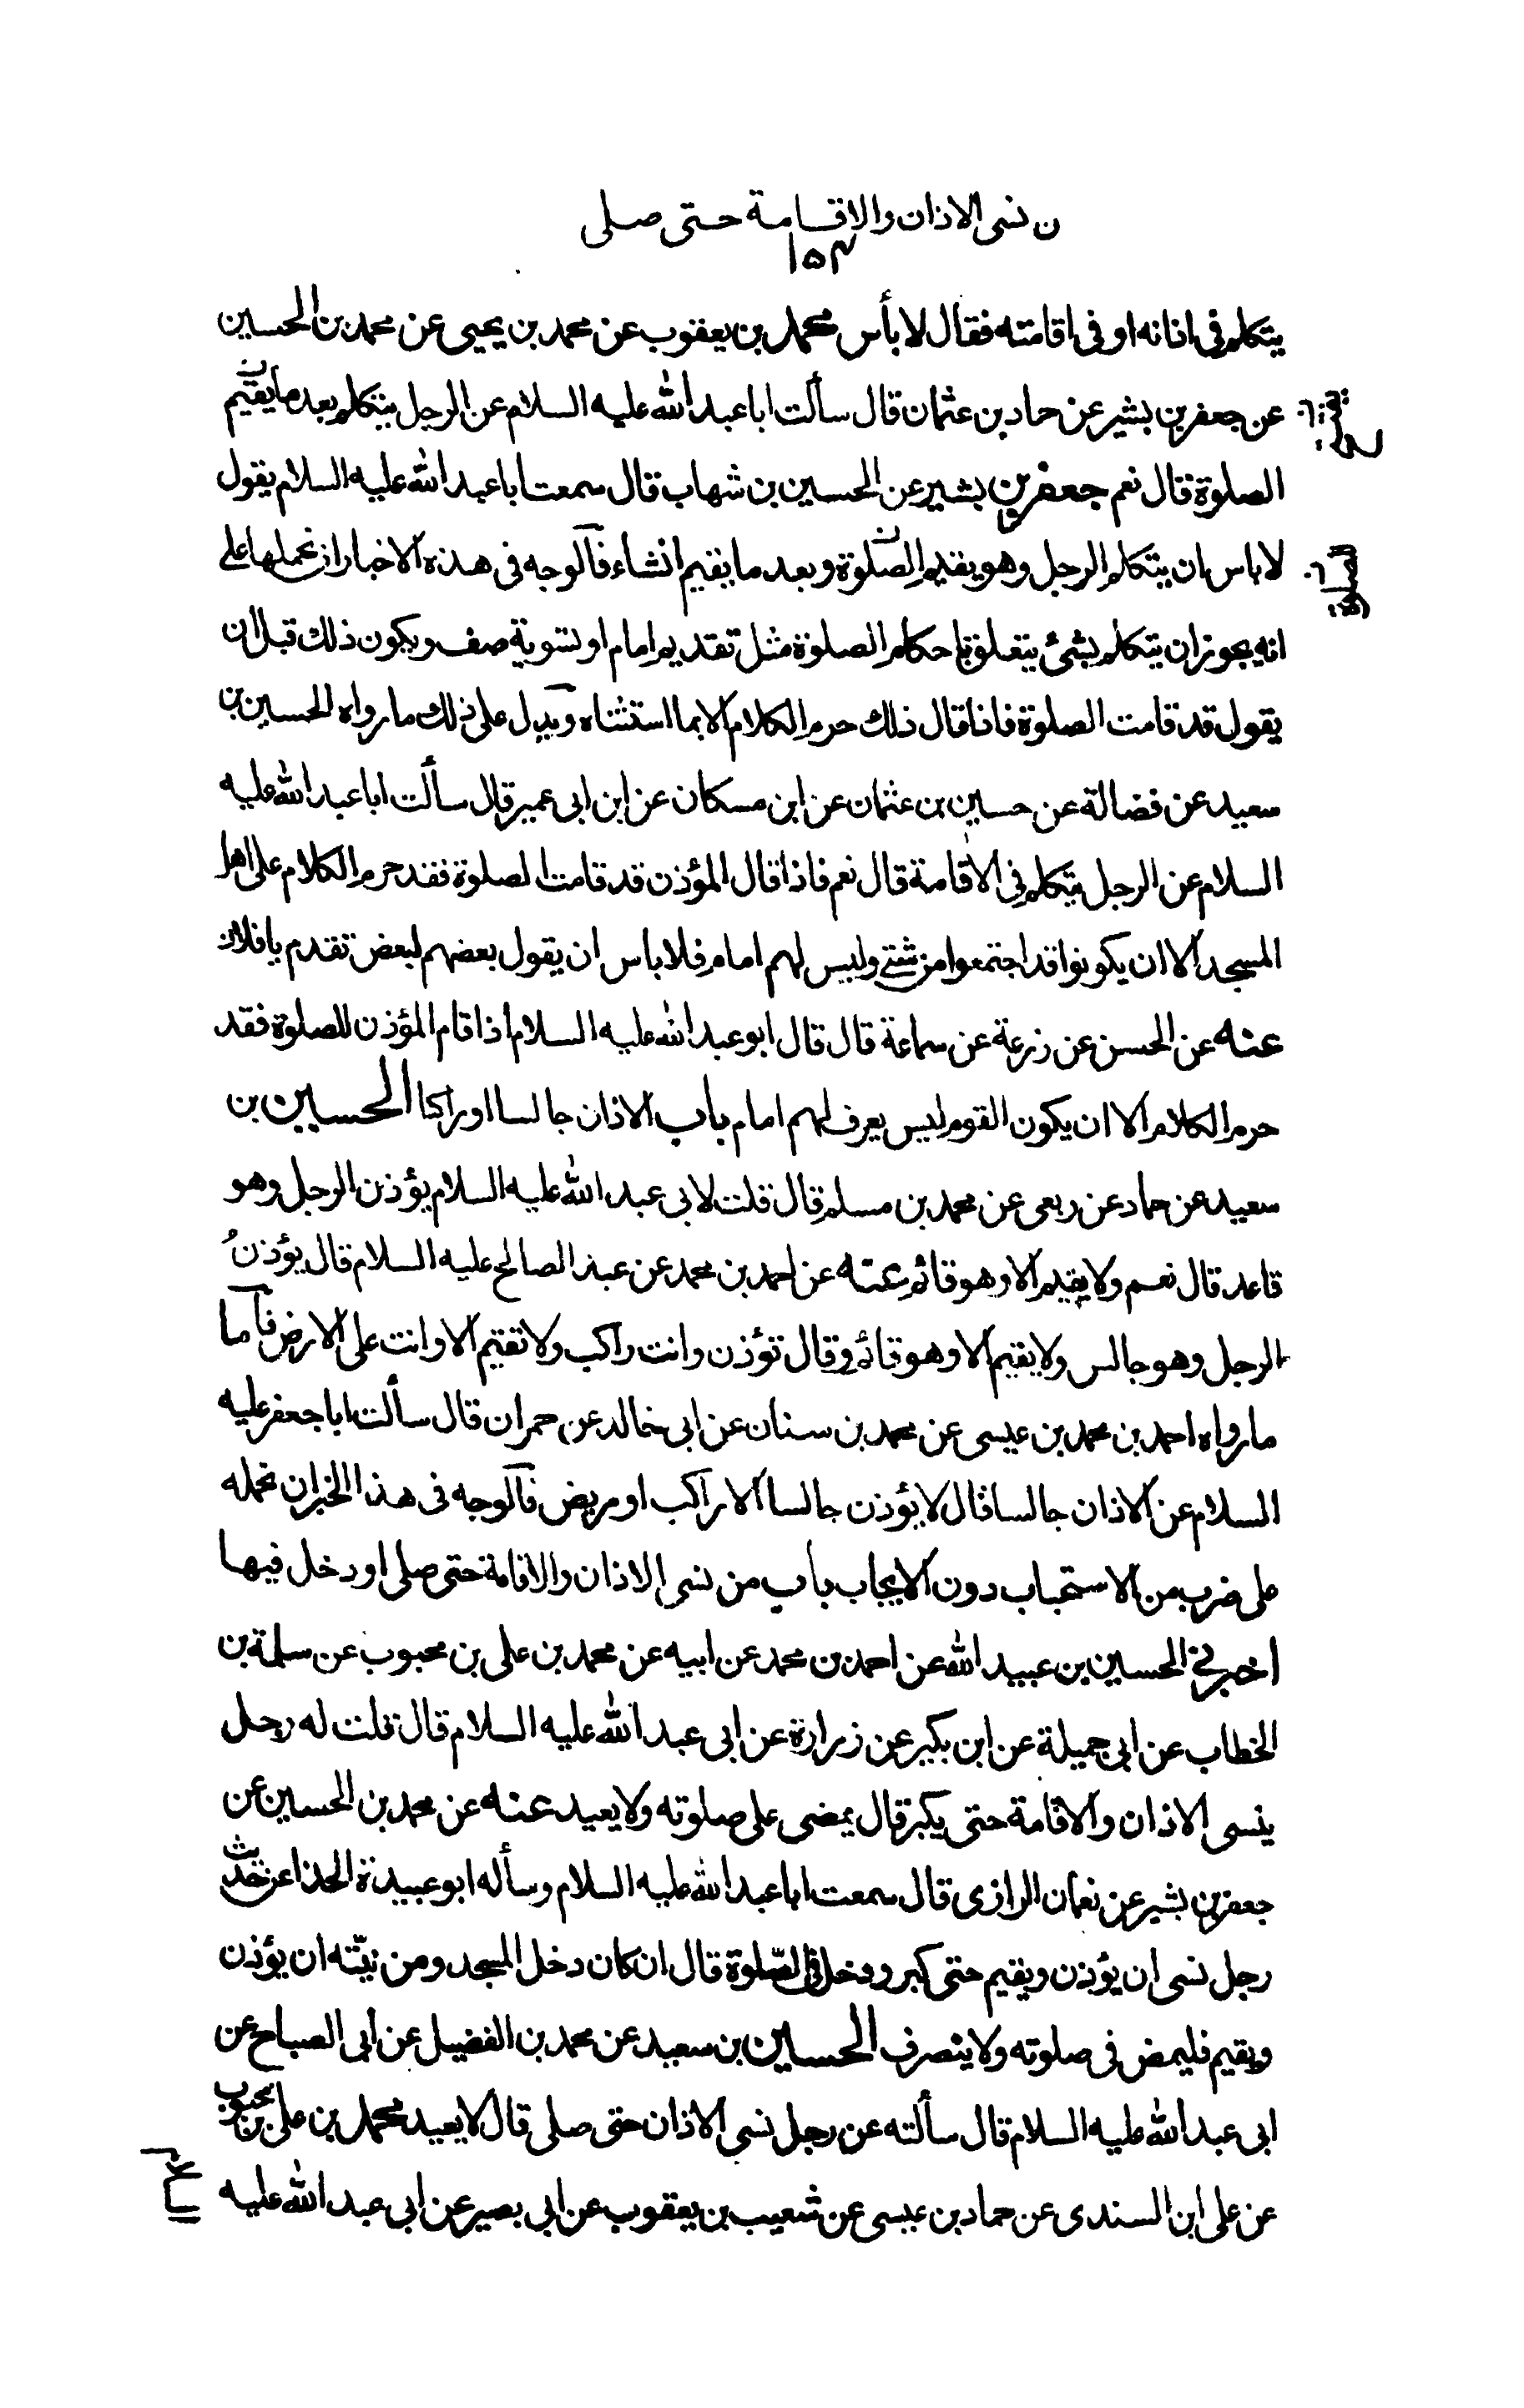 ن نسى الاذان والاقامة حتى صلى
١٥٣
يتكلم فى اذانه او فى اقامته فقال لا بأس محمد بن يعقوب عن محمد بن يحيى عن محمد بن الحسين
عن جعفر بن بشير عن حماد بن عثمان قال سألت ابا عبد الله عليه السلام عن الرجل يتكلم بعد ما يقيم
الصلوة قال نعم جعفر بن بشير عن الحسين بن شهاب قال سمعت ابا عبد الله عليه السلام يقول
لا باس ان يتكلم الرجل وهو يقيم الصلوة وبعد ما يقيم انشاء فالوجه فى هذه الاخبار ان نحملها على
انه يجوز ان يتكلم بشئ يتعلق باحكام الصلوة مثل تقديم امام او تسوية صف ويكون ذلك قبل ان
يقول قد قامت الصلوة فاذا قال ذلك حرم الكلام الا بما استثناه ويدل على ذلك ما رواه الحسين بن
سعيد عن فضالة عن حسين بن عثمان عن ابن مسكان عن ابن ابى عمير قال سألت ابا عبد الله عليه
السلام عن الرجل يتكلم فى الاقامة قال نعم فاذا قال المؤذن قد قامت الصلوة فقد حرم الكلام على اهل
المسجد الا ان يكونوا قد اجتمعوا من شتى وليس لهم امام فلا باس ان يقول بعضهم لبعض تقدم يا فلان
عنه عن الحسن عن زرعة عن سماعة قال قال ابو عبد الله عليه السلام اذا قام المؤذن للصلوة فقد
حرم الكلام الا ان يكون القوم ليس يعرف لهم امام باب الاذان جالسا او راكبا الحسين بن
سعيد عن حماد عن ربعى عن محمد بن مسلم قال قلت لابى عبد الله عليه السلام يؤذن الرجل وهو
قاعد قال نعم ولا يقيم الا وهو قائم عنه عن احمد بن محمد عن عبد الصالح عليه السلام قال يؤذن
الرجل وهو جالس ولا يقيم الا وهو قائم وقال تؤذن وانت راكب ولا تقيم الا وانت على الارض فاما
ما رواه احمد بن محمد بن عيسى عن محمد بن سنان عن ابى خالد عن حمران قال سألت ابا جعفر عليه
السلام عن الاذان جالسا قال لا يؤذن جالسا الا راكب او مريض فالوجه فى هذا الخبر ان نحمله
على ضرب من الاستحباب دون الايجاب باب من نسى الاذان والاقامة حتى صلى او دخل فيها
اخبرنى الحسين بن عبيد الله عن احمد بن محمد عن ابيه عن محمد بن على بن محبوب عن سلمة بن
الخطاب عن ابى جميلة عن ابن بكير عن زرارة عن ابى عبد الله عليه السلام قال قلت له رجل
ينسى الاذان والاقامة حتى يكبر قال يمضى على صلوته ولا يعيد عنه عن محمد بن الحسين عن
جعفر بن بشير عن نعمان الرازى قال سمعت ابا عبد الله عليه السلام وسأله ابو عبيدة الحذا عن حديث
رجل نسى ان يؤذن ويقيم حتى كبر ودخل فى الصلوة قال ان كان دخل المسجد ومن نيّته ان يؤذن
ويقيم فليمض فى صلوته ولا ينصرف الحسين بن سعيد عن محمد بن الفضيل عن ابى الصباح عن
ابى عبد الله عليه السلام قال سألته عن رجل نسى الاذان حتى صلى قال لا يعيد محمد بن على بن محبوب
عن على ابن السندى عن حماد بن عيسى عن شعيب بن يعقوب عن ابى بصير عن ابى عبد الله عليه